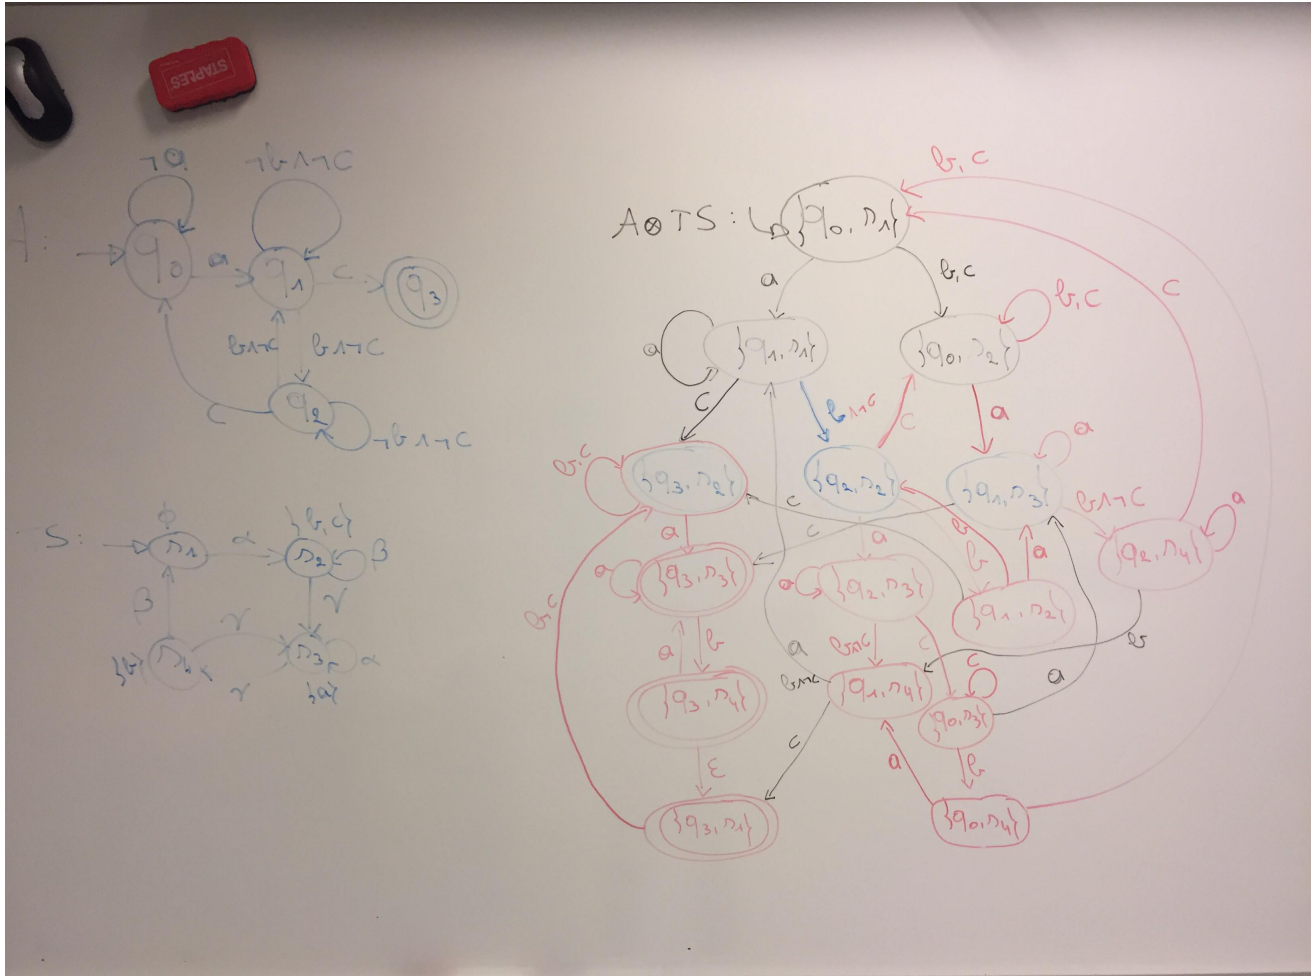 STAPLES
¬a
¬b∧¬c
A:
q0
a
q1
c
q3
b∧¬c
b∧¬c
c
q2
¬b∧¬c
TS:
ϕ
s1
α
{b,c}
s2
β
β
γ
γ
{b}
s4
γ
s3
α
{a}
A⊗TS:
{q0,s1}
b,c
a
b,c
c
a
{q1,s1}
{q0,s2}
b,c
c
b∧¬c
c
a
b,c
{q3,s2}
{q2,s2}
{q1,s3}
a
b∧¬c
c
c
a
a
b
b
a
{q2,s4}
a
a
{q3,s3}
a
{q2,s3}
{q1,s2}
b,c
a
b
a
b∧¬c
c
b
b∧¬c
c
a
{q3,s4}
{q1,s4}
{q0,s3}
ε
c
a
b
{q3,s1}
{q0,s4}